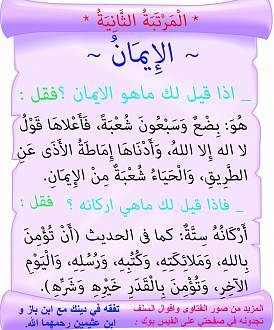 * الْمَرْتَبَةُ الثَّانِيَةُ *
~ الإِيمَانُ ~
_ اذا قيل لك ماهو الايمان ؟فقل :
هُوَ: بِضْعٌ وَسَبْعُونَ شُعْبَةً، فَأَعْلاهَا قَوْلُ
لا اله إلا اللهُ، وَأَدْنَاهَا إِمَاطَةُ الأَذَى عَنِ
الطَّرِيقِ، وَالْحَيَاءُ شُعْبَةٌ مِنْ الإِيمَانِ.
_ فاذا قيل لك ماهي اركانه ؟ فقل :
أَرْكَانُهُ سِتَّةٌ: كما في الحديث (أَنْ تُؤْمِنَ
بِاللهِ، وَمَلائكَتِهِ، وَكُتُبِهِ، وَرُسُلِهِ، وَالْيَوْمِ
الآخِرِ، وَتُؤْمِنَ بِالْقَدَرِ خَيْرِهِ وَشَرِّهِ).
المزيد من صور الفتاوى واقوال السلف
تجدونه في صفحتي على الفيس بوك :
تفقه في دينك مع ابن باز و
ابن عثيمين رحمهما الله.